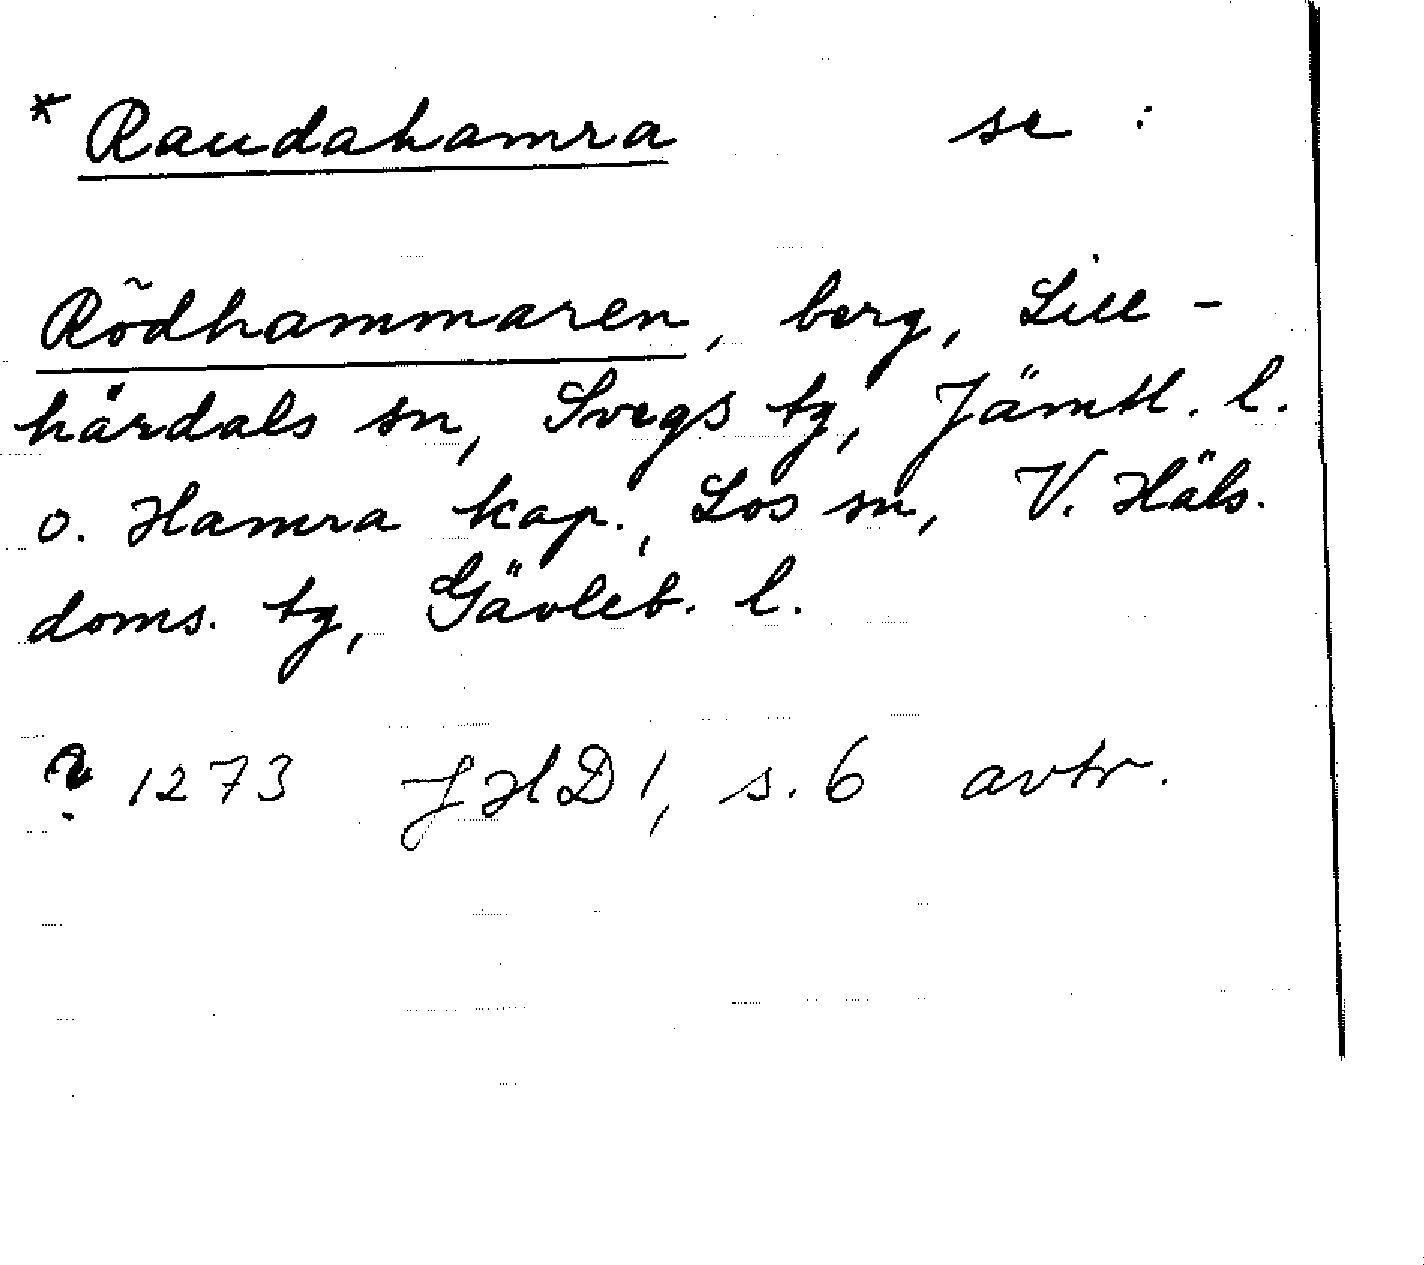 * Raudahamra se :
Rödhammaren, berg, Lill-
härdals sn, Svegs tg, Jämtl. l.
o. Hamra kap., Los sn, V. Häls.
doms. tg, Gävleb. l.
? 1273 JHD 1, s. 6 avtr.